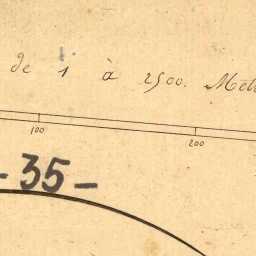 de 1 à 2500. Mèt
100 200
- 35 -